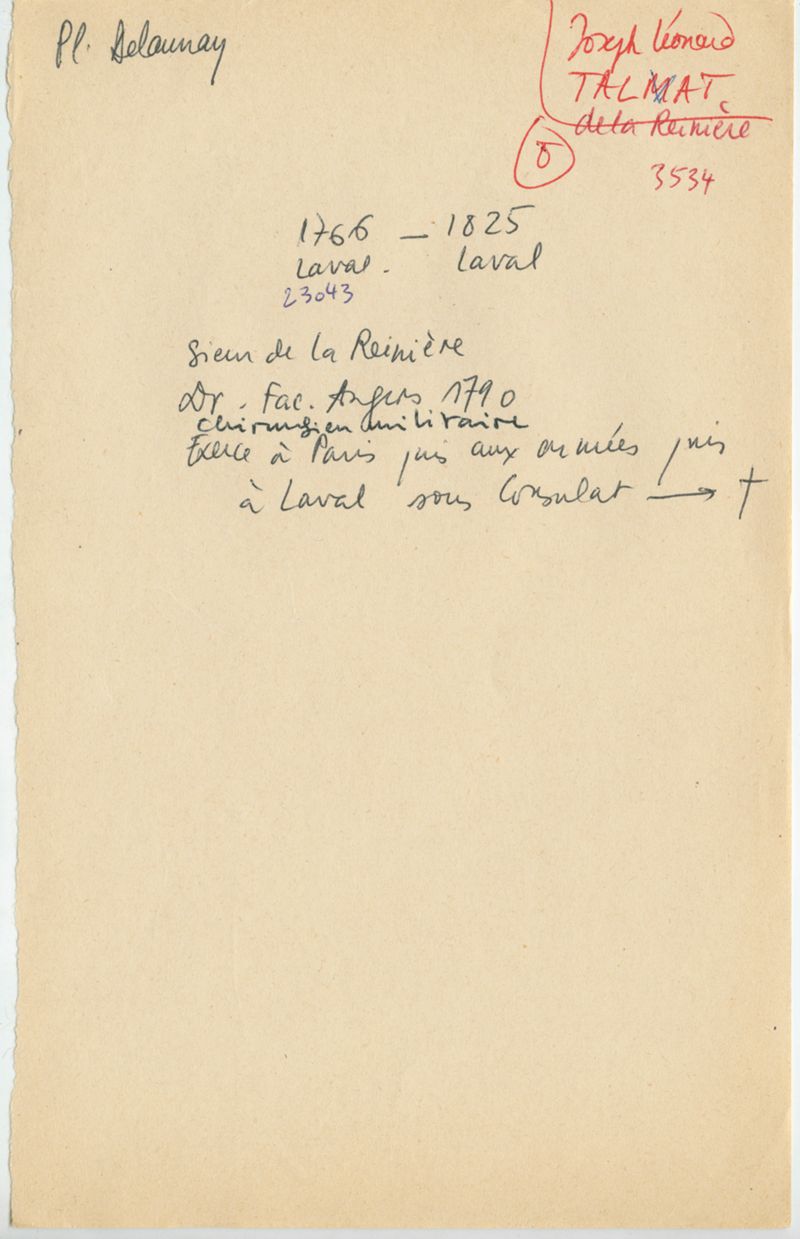 Pl. Delaunay
Joseph Léonard
TALMAT
de la Reinière
3534
1766 — 1825
Laval. Laval
23043
Sieur de la Reinière
Dr. Fac. Angers 1790
chirurgien militaire
Exerce à Paris puis aux armées puis
à Laval sous Consulat → †